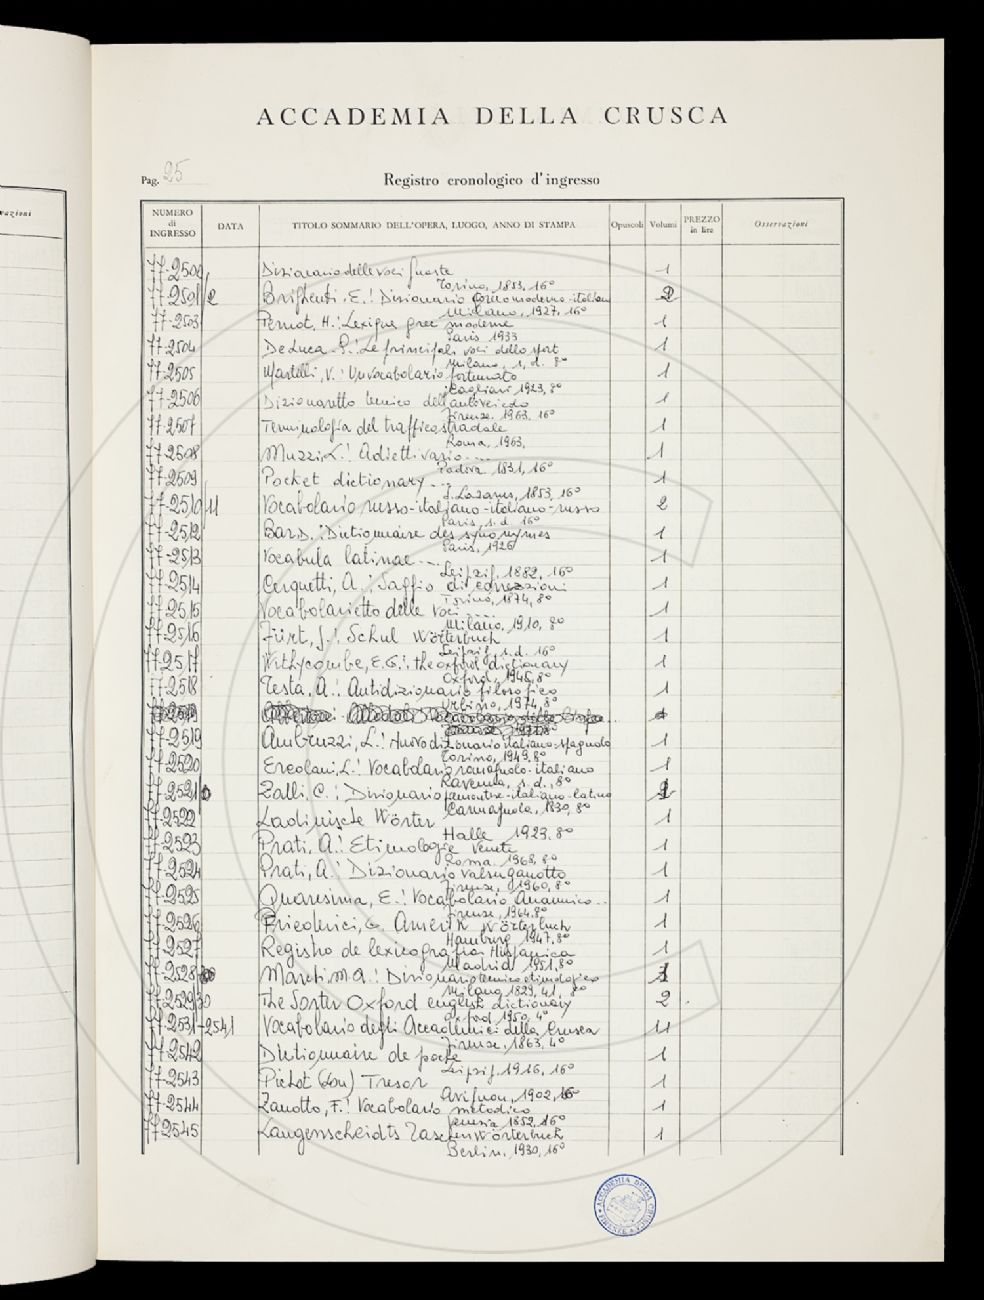 vazioni
ACCADEMIA DELLA CRUSCA
Pag. 25
Registro cronologico d'ingresso
NUMERO di INGRESSO DATA TITOLO SOMMARIO DELL'OPERA, LUOGO, ANNO DI STAMPA Opuscoli Volumi PREZZO in lire Osservazioni
77-2500 Dizionario delle voci guaste 1
Torino, 1853, 16°
77-2501/2 Brighenti, E.: Dizionario greco moderno-italiano 2
Milano, 1927, 16°
77-2503 Pernot, H.: Lexique grec moderne 1
Paris 1933
77-2504 De Luca G.: Le principali voci dello sport 1
Milano, s. d. 8°
77-2505 Martelli, V.: Un vocabolario fortunato 1
Cagliari 1923, 8°
77-2506 Dizionaretto tecnico dell'autoveicolo 1
Firenze, 1963, 16°
77-2507 Terminologia del traffico stradale 1
Roma, 1963,
77-2508 Muzzi, L.: Adiettivario.... 1
Padova 1831, 16°
77-2509 Pocket dictionary... 1
1853, 16°
77-2510/11 Vocabolario russo-italiano-italiano-russo 2
Paris, s. d. 16°
77-2512 Bar, D.: Dictionnaire des synonymes 1
Paris, 1926
77-2513 Vocabula latinae... 1
Leipzig, 1882, 16°
77-2514 Cerquetti, A.: Saggio di correzioni 1
Torino, 1874, 8°
77-2515 Vocabolarietto delle voci .... 1
Milano, 1910, 8°
77-2516 Fürt, J.: Schul Wörterbuch 1
Leipzig, s. d. 16°
77-2517 Withycombe, E.G.: the oxford dictionary 1
Oxford, 1945, 8°
77-2518 Testa, A.: Antidizionario filosofico 1
Urbino, 1974, 8°
77-2519 Ambruzzi, L.: Nuovo dizionario italiano-spagnolo 1
Torino, 1949, 8°
77-2520 Ercolani, L.: Vocabolario romagnolo-italiano 1
Ravenna, s. d., 8°
77-2521 Zalli, C.: Dizionario piemontese-italiano-latino 1
Carmagnola, 1830, 8°
77-2522 Ladinische Wörter 1
Halle 1923, 8°
77-2523 Prati, A.: Etimologie venete 1
Roma 1968, 8°
77-2524 Prati, A.: Dizionario valsuganotto 1
Firenze, 1960, 8°
77-2525 Quaresima, E.: Vocabolario Anaunico.. 1
Firenze, 1964, 8°
77-2526 Friederici, G. Amerik Wörterbuch 1
Hamburg 1947, 8°
77-2527 Registro de lexicografia Hispanica 1
Madrid 1951, 8°
77-2528 Marchi, M.A.: Dizionario tecnico etimologico 1
Milano 1829, 41, 8°
77-2529/30 The Sorter Oxford english dictionary 2
Oxford 1950, 4°
77-2531-2541 Vocabolario degli Accademici della Crusca 11
Firenze, 1863, 4°
77-2542 Dictionnaire de poche 1
Leipzig, 1916, 16°
77-2543 Pichot (Lou) Tresor 1
Avignon, 1902, 16°
77-2544 Zanotto, F.: Vocabolario metodico 1
Venezia 1852, 16°
77-2545 Langenscheidts Taschenwörterbuch 1
Berlin, 1930, 16°
ACCADEMIA DELLA CRUSCA FIRENZE